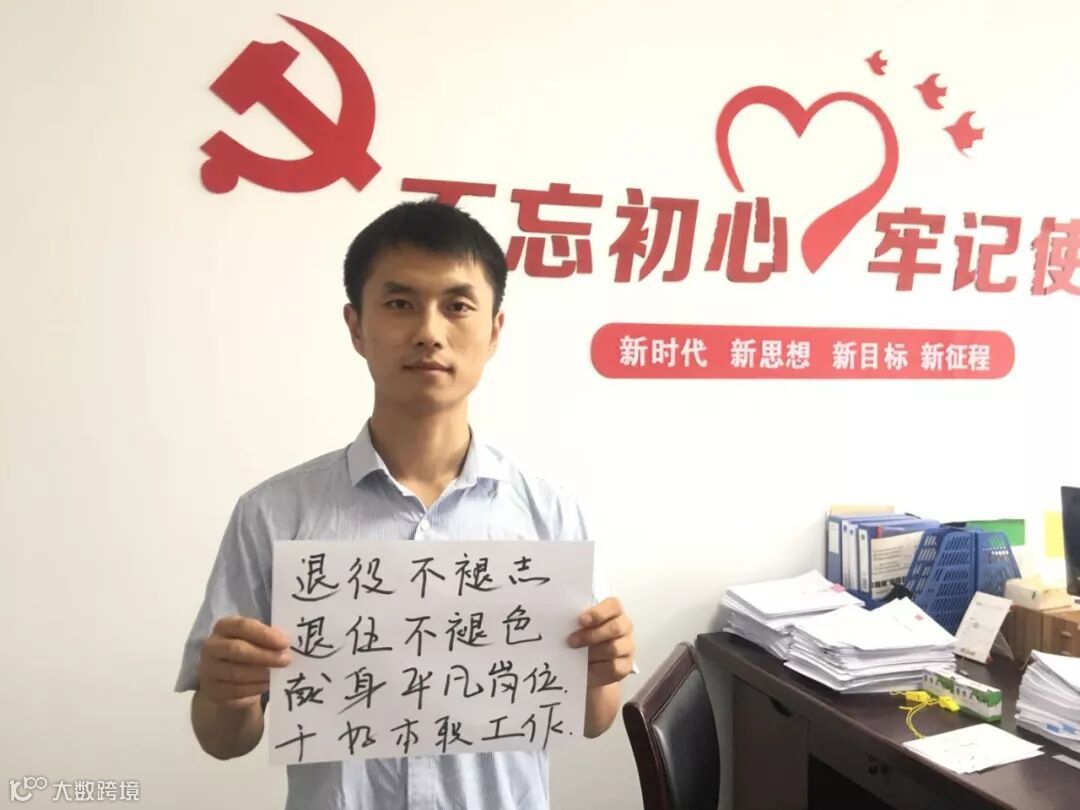 不忘初心 牢记使
新时代 新思想 新目标 新征程
退役不褪志
退伍不褪色
献身平凡岗位.
干好本职工作.
大数跨境